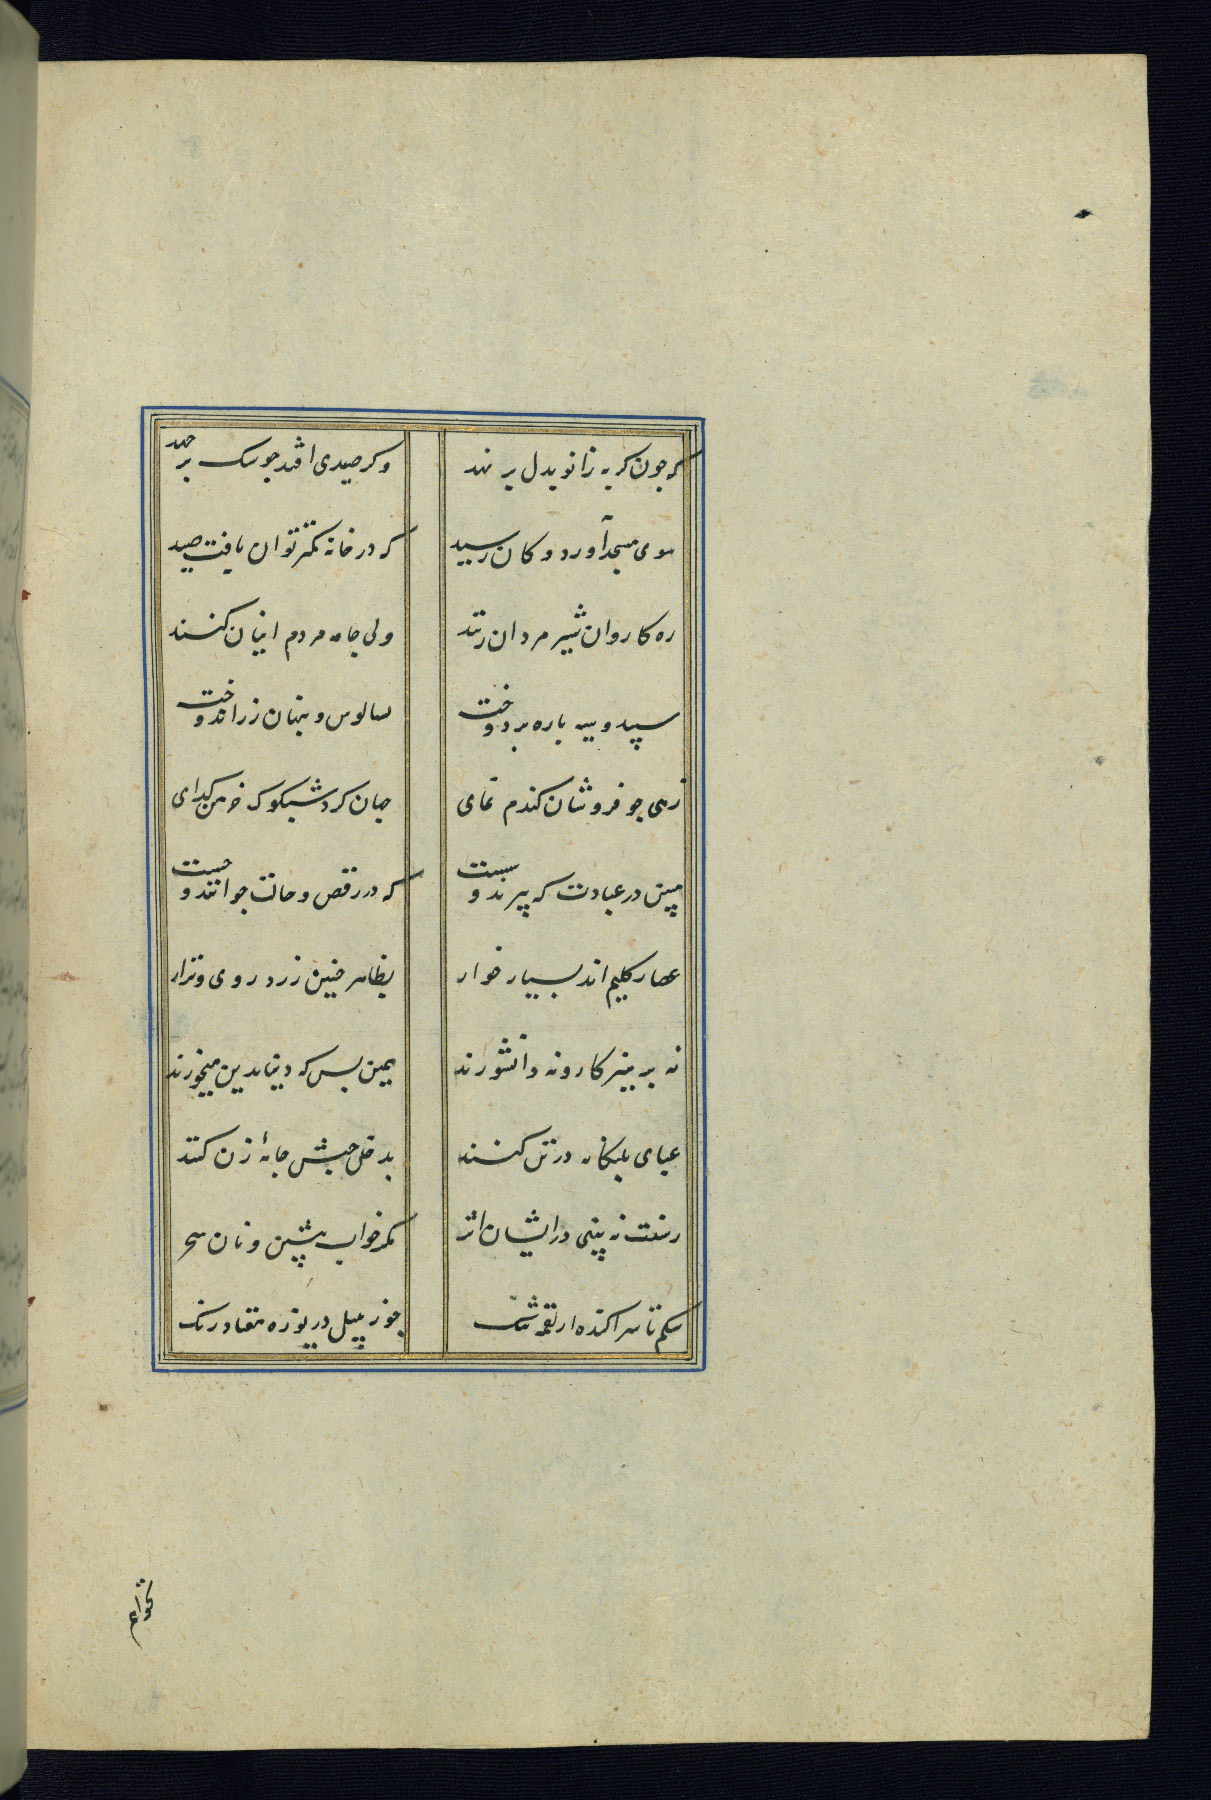 که چون کربه زانو بدل بر نهد وکر صیدی افتد چو سک بر جهد
سوی مسجد آورد دوکان رسید که در خانه کمتر توان یافت صید
ره کاروان شیر مردان زنند ولی جامه مردم اینان کنند
سپید و سیه باره بر دوخت بسالوس و پنهان زر اندوخت
زهی جو فروشان کندم نمای جهان کرد شبکوک خرمن کدای
مبین در عبادت که پیرند و سست که در رقص و حالت جوانند و چست
عصا کلیم اند بسیار خوار بظاهر چنین زرد روی و نزار
نه پرهیزکار و نه دانشورند همین بس که دنیا بدین میخورند
عبای بلیکانه در تن کنند بدخل حبش جامهٔ زن کنند
ز سنت نه بینی در ایشان اثر مکر خواب پیشین و نان سحر
شکم تا سر آکنده از لقمه تنک چو زنبیل دریوزه هفتاد رنک
نخواهم